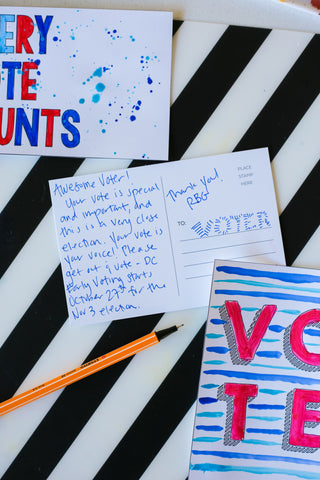 ERY
TE
UNTS
Awesome Voter!
Your vote is special
and important, and
this is a very close
election. Your vote is
your voice! Please
get out & vote - DC
Early Voting starts
October 27th for the
Nov 3 election.
Thank you!
RBG
PLACE
STAMP
HERE
TO:
VOTER
VO
TE